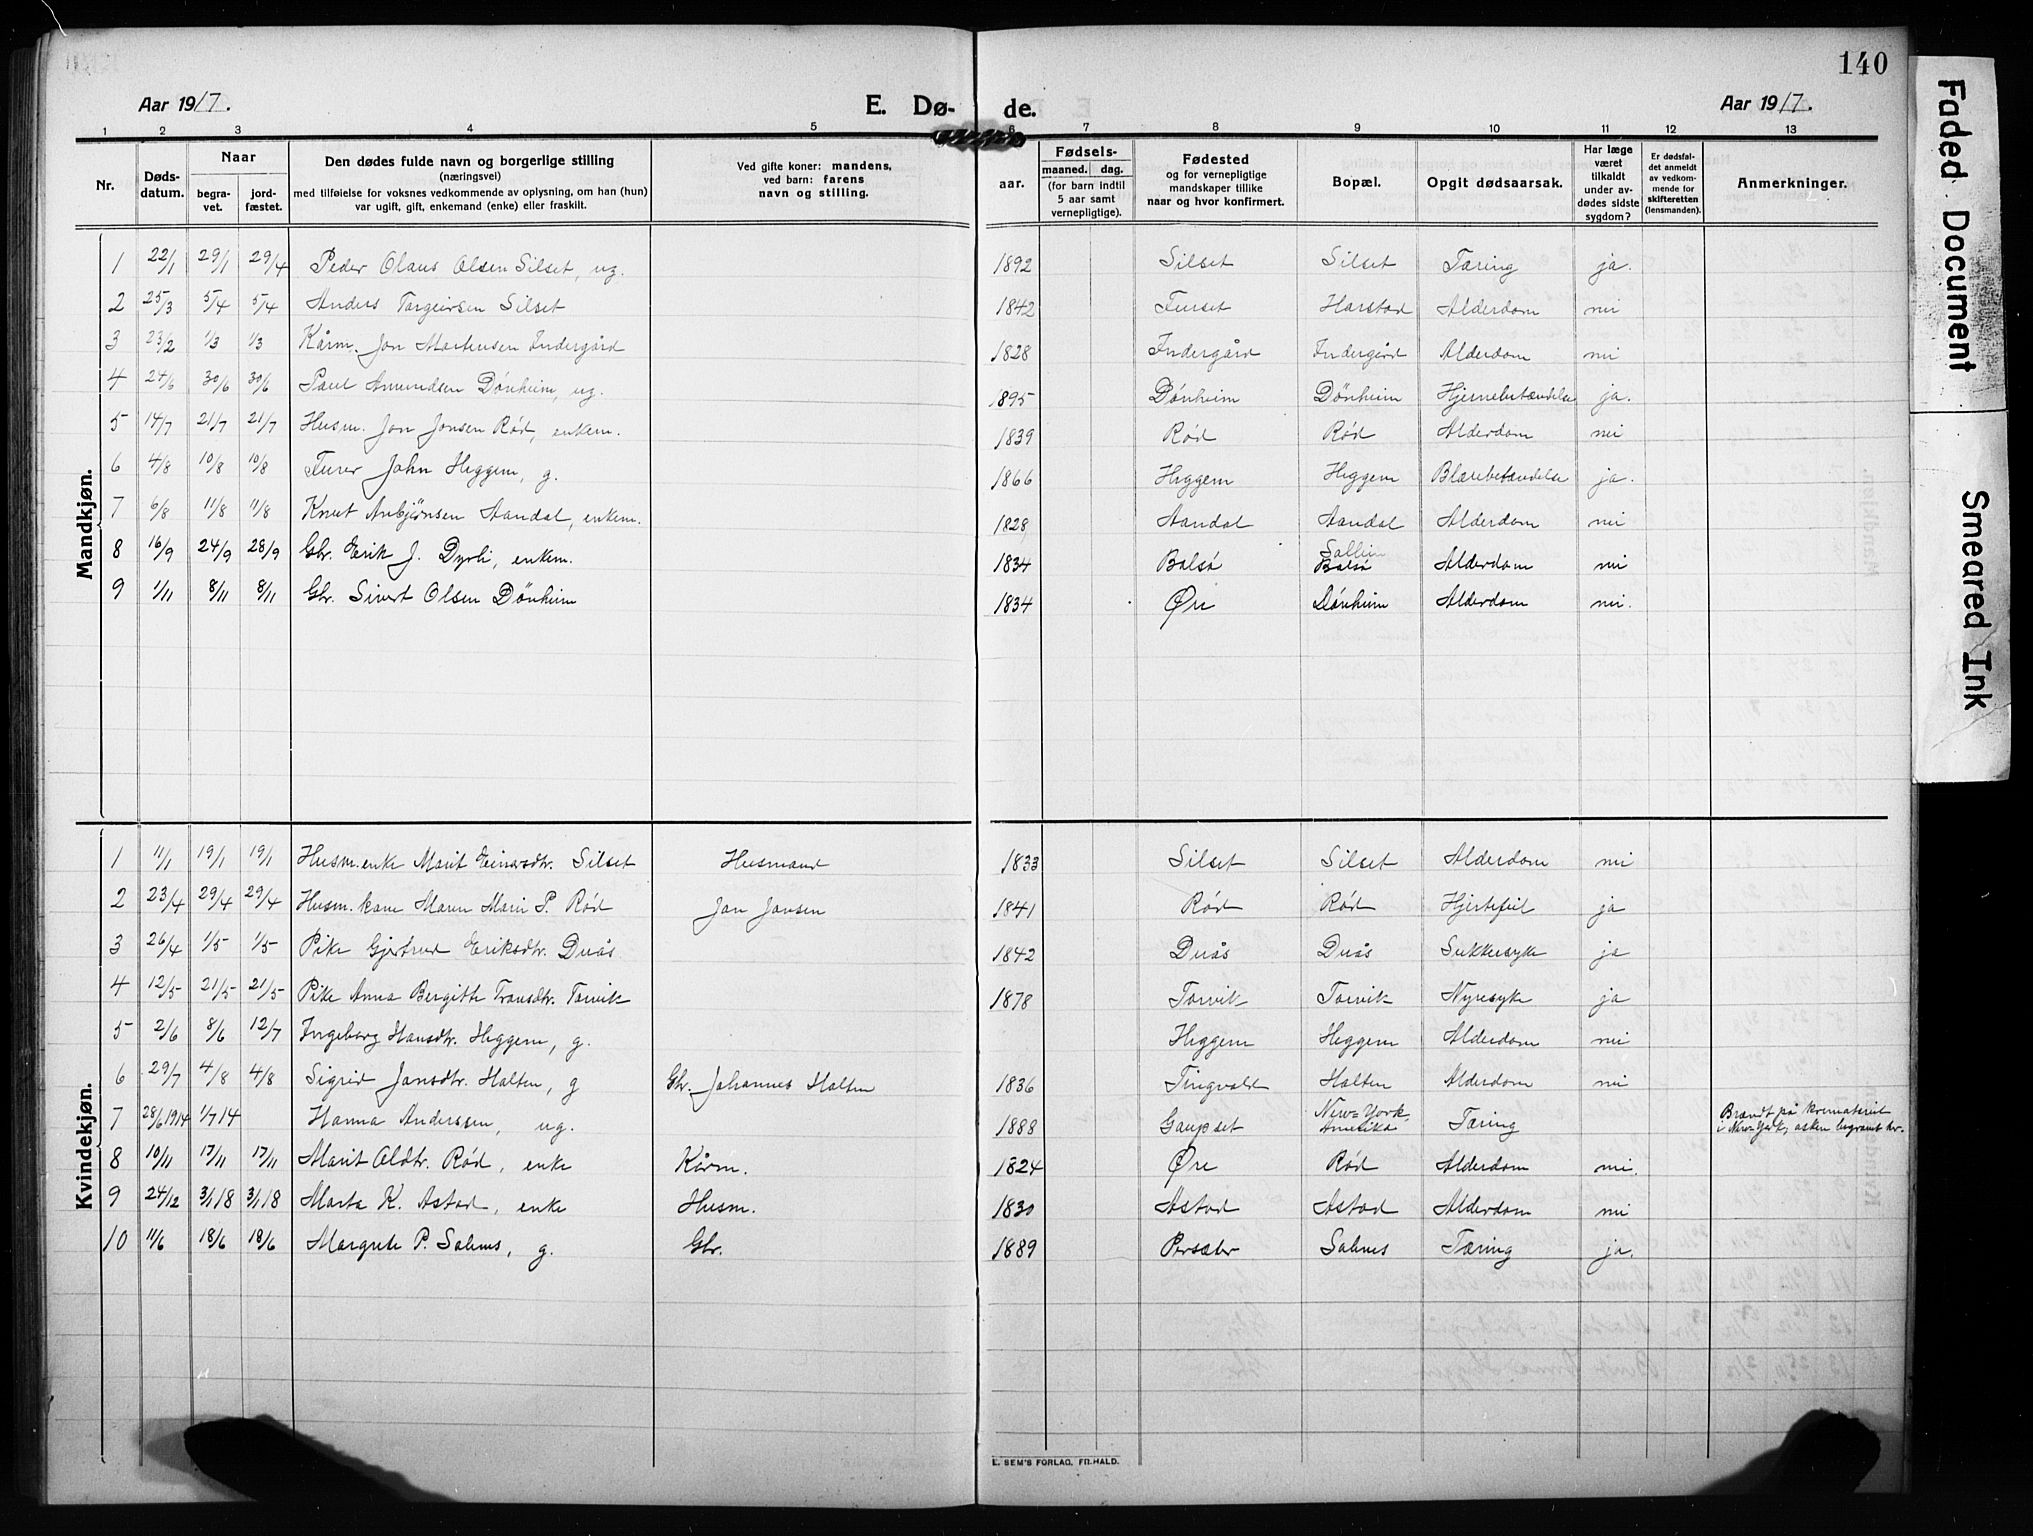 140
Aar 1917.
E. Dø-
de.
Aar 1917.
1 2 3 4 5 6 7 8 9 10 11 12 13
Nr.
Døds-
datum.
Naar
begra-
vet.
jord-
fæstet.
Den dødes fulde navn og borgerlige stilling
(næringsvei)
med tilføielse for voksnes vedkommende av oplysning, om han (hun)
var ugift, gift, enkemand (enke) eller fraskilt.
Ved gifte koner: mandens,
ved barn: farens
navn og stilling.
aar.
Fødsels-
maaned. dag.
(for barn indtil
5 aar samt
vernepligtige).
Fødested
og for vernepligtige
mandskaper tillike
naar og hvor konfirmert.
Bopæl.
Opgit dødsaarsak.
Har læge
været
tilkaldt
under av-
dødes sidste
sygdom?
Er dødsfal-
det anmeldt
av vedkom-
mende for
skifteretten
(lensmanden).
Anmerkninger.
Mandkjøn.
1 22/1 29/1 29/4 Peder Olaus Olsen Silset, ug. 1892 Silset Silset Tæring ja.
2 25/3 5/4 5/4 Anders Torgeirsen Silset 1842 Furset Harstad Alderdom nei
3 23/2 1/3 1/3 Kårm. Jon Mortensen Indergård 1828 Indergård Indergård Alderdom nei
4 24/6 30/6 30/6 Paul Amundsen Dönheim, ug. 1895 Dönheim Dönheim Hjernebetændelse ja.
5 14/7 21/7 21/7 Husm. Jon Jonsen Rød, enkem. 1839 Rød Rød Alderdom nei
6 4/8 10/8 10/8 Furer John Heggem, g. 1866 Heggem Heggem Blærebetændelse ja.
7 6/8 11/8 11/8 Knut Anbjörnsen Aandal, enkem. 1828 Aandal Aandal Alderdom nei
8 16/9 24/9 28/9 Gbr. Erik J. Dyrli, enkem. 1834 Balsø Balsø Alderdom nei
9 1/11 8/11 8/11 Gbr. Sivert Olsen Dönheim 1834 Øre Dönheim Alderdom nei.
Kvindekjøn.
1 11/1 19/1 19/1 Husm.enke Marit Einarsdtr. Silset Husmand 1833 Silset Silset Alderdom nei
2 23/4 29/4 29/4 Husm. kone Maren Marie P. Rød Jon Jonsen 1841 Rød Rød Hjertefeil ja
3 26/4 1/5 1/5 Pike Gjertrud Eriksdtr. Duås 1842 Duås Duås Sukkersyke ja
4 12/5 21/5 21/5 Pike Anna Bergitte Transdtr. Torvik 1878 Torvik Torvik Nyresyke ja
5 2/6 8/6 12/7 Ingeborg Hansdtr. Heggem, g. Heggem Heggem Alderdom nei
6 29/7 4/8 4/8 Sigrid Jonsdtr. Halten, g Gbr. Johannes Halten 1836 Tingvold Halten Alderdom nei
7 28/6 1914 1/7 14 Hanna Anderssen, ug. 1888 Gaupset New-York Amerika Tæring Brændt på krematoriet
i New-York, asken begravet her.
8 10/11 17/11 17/11 Marit Oldtr. Rød, enke Kårm. 1824 Øre Rød Alderdom nei.
9 24/12 3/1 18 3/1 18 Marta K. Astad, enke Husm. 1830 Astad Astad Alderdom nei
10 11/6 18/6 18/6 Margrete P. Solenes, g. Gbr. 1889 Persæter Solenes Tæring ja.
E. SEM'S FORLAG, FR.HALD.
Faded Document
Smeared Ink